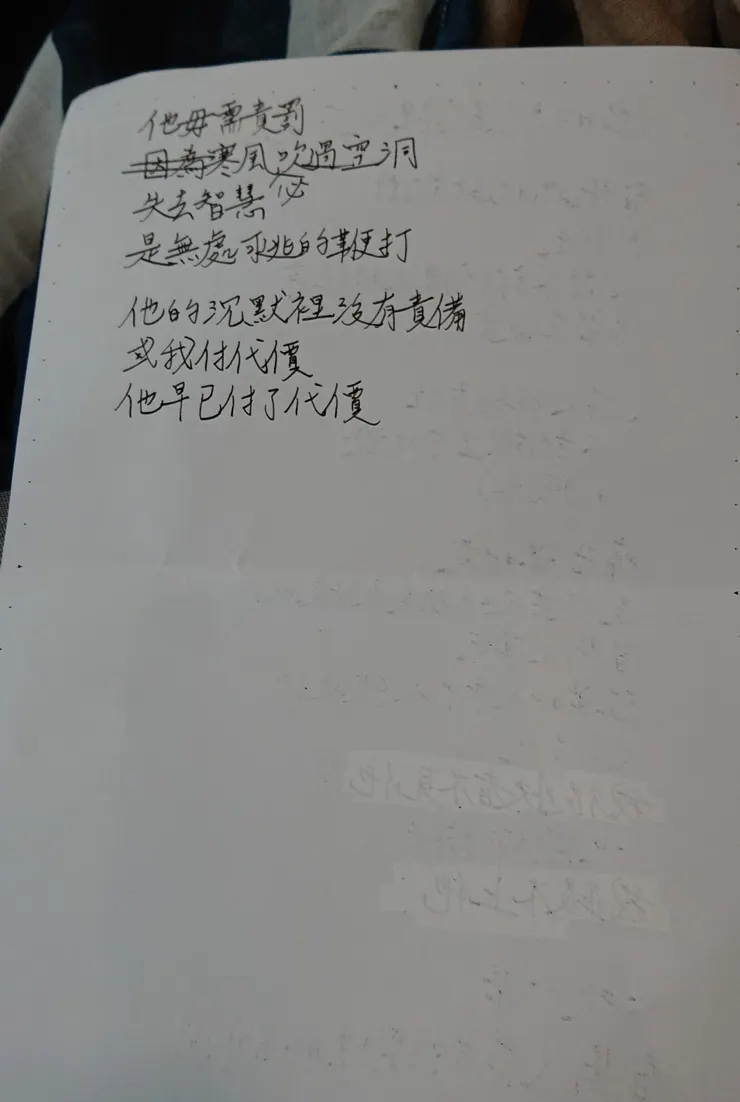 他毋需責罰
因為寒風吹過空洞
失去智慧必
是無處可逃的鞭打
他的沉默裡沒有責備
或我付代價
他早已付了代價